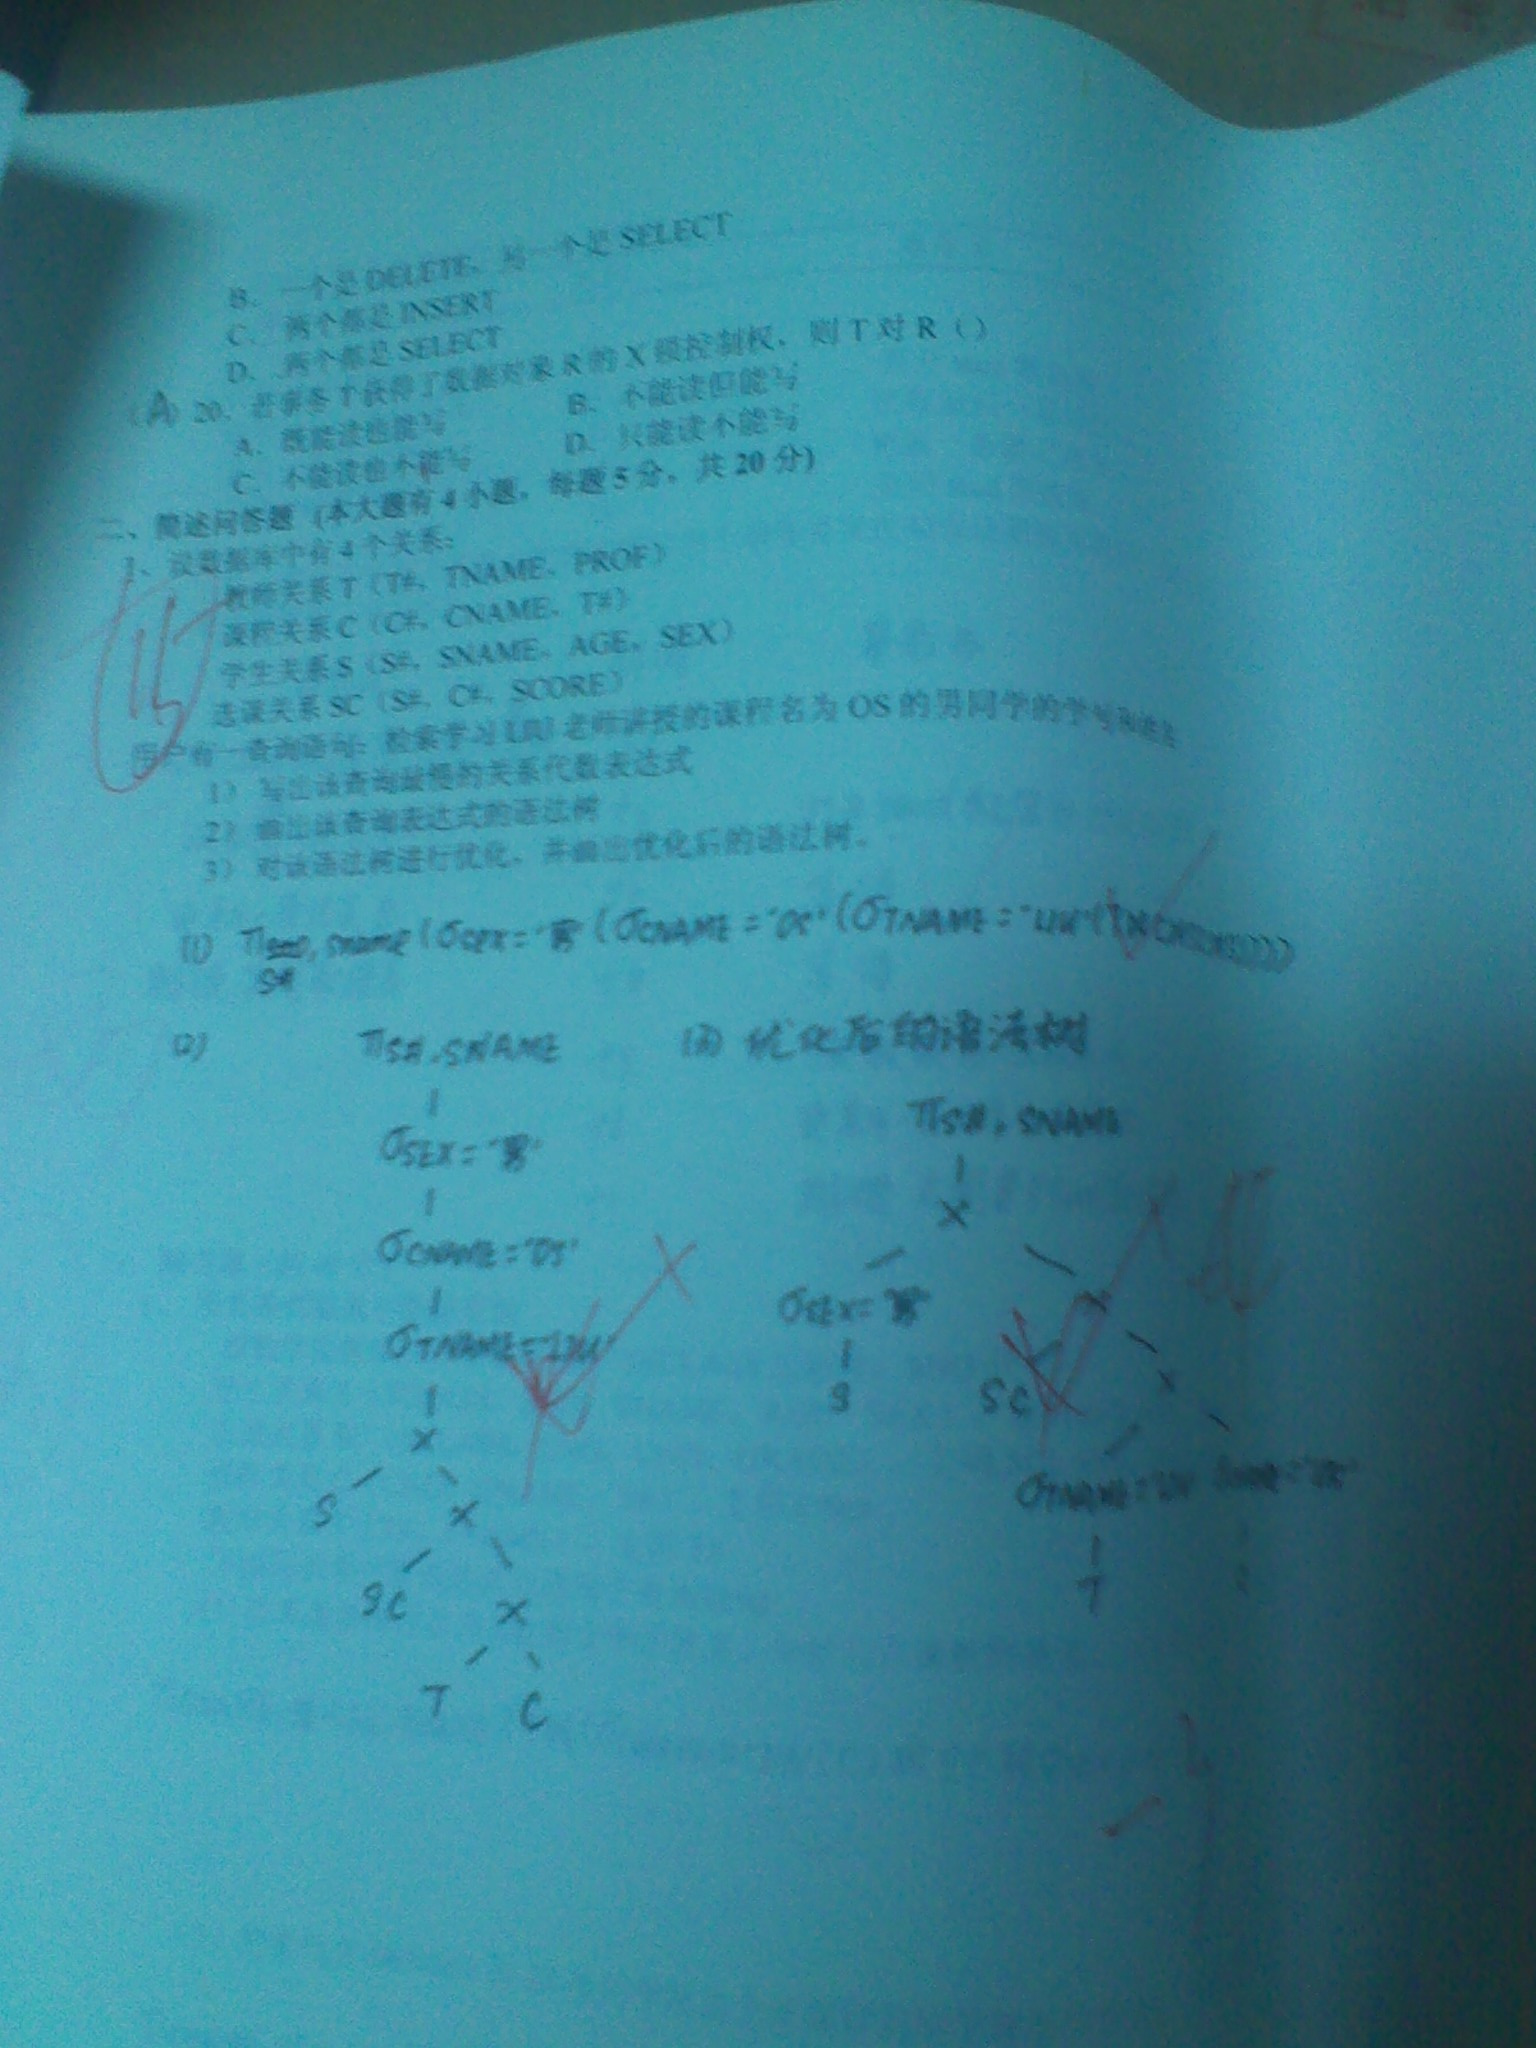 B. 一个是DELETE，另一个是SELECT
C. 两个都是INSERT
D. 两个都是SELECT
(A) 20、若事务T获得了数据对象R的X锁控制权，则T对R（）
A. 既能读也能写 B. 不能读但能写
C. 不能读也不能写 D. 只能读不能写
二、简述问答题（本大题有4小题，每题5分，共20分）
1、设数据库中有4个关系：
教师关系T（T#，TNAME，PROF）
课程关系C（C#，CNAME，T#）
学生关系S（S#，SNAME，AGE，SEX）
选课关系SC（S#，C#，SCORE）
用户有一查询语句：检索学习LIU老师讲授的课程名为OS的男同学的学号和姓名
1） 写出该查询最慢的关系代数表达式
2） 画出该查询表达式的语法树
3） 对该语法树进行优化，并画出优化后的语法树。
15
(1) π S#, SNAME (σSEX='男' (σCNAME='OS' (σTNAME='LIU'
(2) πS#,SNAME
σSEX='男'
σCNAME='OS'
σTNAME='LIU'
×
S ×
SC ×
T C
(3) 优化后的语法树
πS#,SNAME
×
σSEX='男' ×
S SC ×
σTNAME='LIU'
T